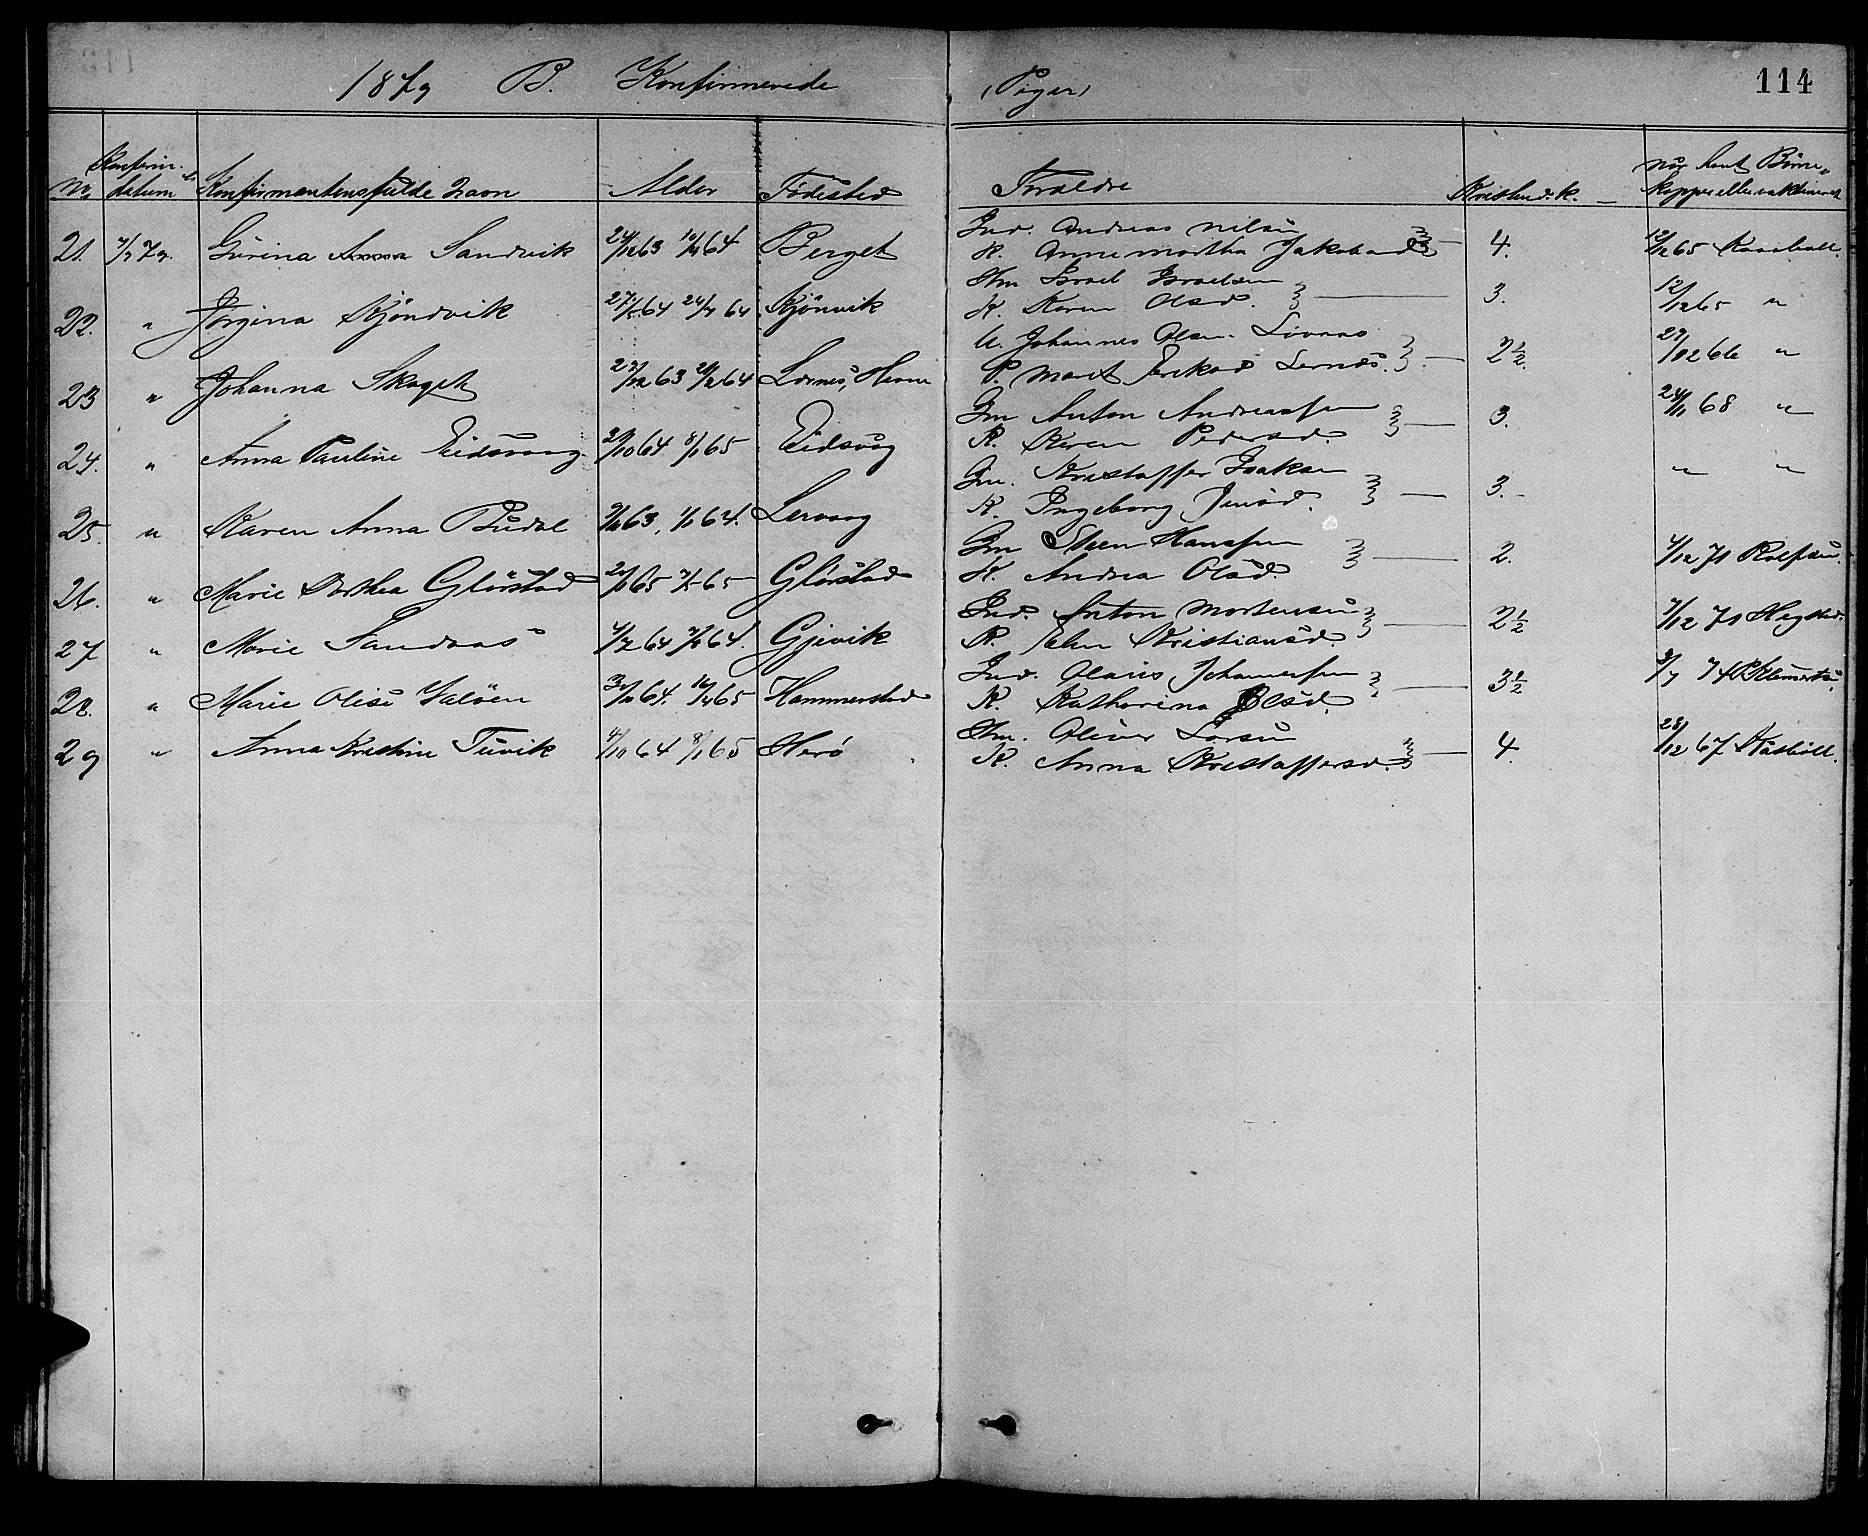 1879 B. Konfirmerede (Piger) 114
No Konfirm. datum Konfirmantens fulde Navn Alder Fødested Forældre Kristend.k. når havt Børnekopper eller vaktineret
21. 79. Gurina Anna Sandvik 24/12 63 10/4 64 Berget Ind. Andreas Nilsen K. Anne Martha Jakobsd. 4. 12/12 65
22. " Jørgina Kjöndvik 27/1 64 24/4 64 Kjönvik Hm Israel Israelsen K. Karen Olsd. 3. 12/12 65 "
23 " Johanna Skaget 63 64 Lernes, Hevne U. Johannes Olsen P. Marit Eriksd. Lernes. 2 1/2. 66 "
24. " Anna Pauline Eidsvaag 64 8/1 65 Eidsvåg Gm Anton Andreassen K. Karen Pedersd. 3. 24/11 68 "
25. " Karen Anna Budal 63, 64. Lervaag Gm. Kristoffer Isaksen K. Ingeborg Jensd. 3. " "
26. " Marie Dorthea Glørstad 65 65 Glørstad Gm Steen Hanssen K. Andrea Olsd. 2. 71 Rolfsen.
27 " Marie Sandaas 64 64. Gjevik Ind. Anton Mortensen K. Elen Kristiansd. 2 1/2 71
28. " Marie Olise Valöen 64. 16/4 65 Hammerstad Ind. Olaus Johannessen K. Katharina Olsd. 3 1/2 74
29 " Anna Kristine Tuvik 4/11 64 8/1 65 Herö Hm. Oliver Larsen K. Anna Kristoffersd. 4. 23/12 67